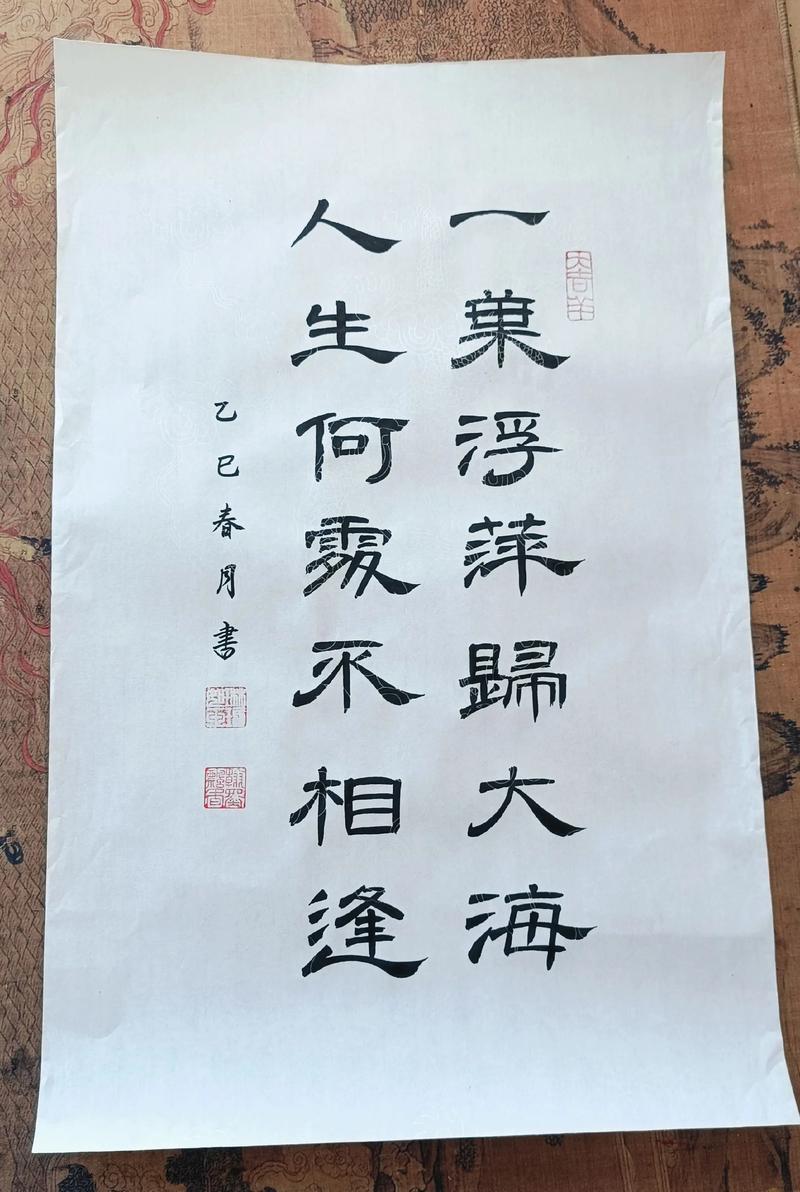 一葉浮萍歸大海
人生何處不相逢
乙巳春月書